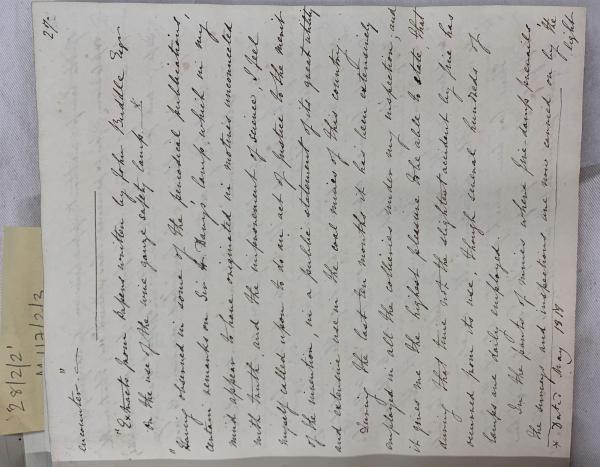 27.
encounter."
"Extracts from papers written by John Buddle Esqr.
on the use of the wire gauze safety lamp. *
"Having observed in some of the periodical publications,
certain remarks on Sir H. Davy's lamp, which in my
mind appear to have originated in motives unconnected
with truth and the improvement of science, I feel
myself called upon to do an act of justice to the merit
of the invention, in a public statement of its great utility
and extensive use in the coal mines of this country.
During the last ten months it has been extensively
employed in all the collieries under my inspection; and
it gives me the highest pleasure to be able to state that
during that time not the slightest accident by fire has
occurred from its use, though several hundreds of
lamps are daily employed.
In the parts of mines where fire damp prevails
the surveys and inspections are now carried on by the
light
* Dated May 1818
28/2/2'